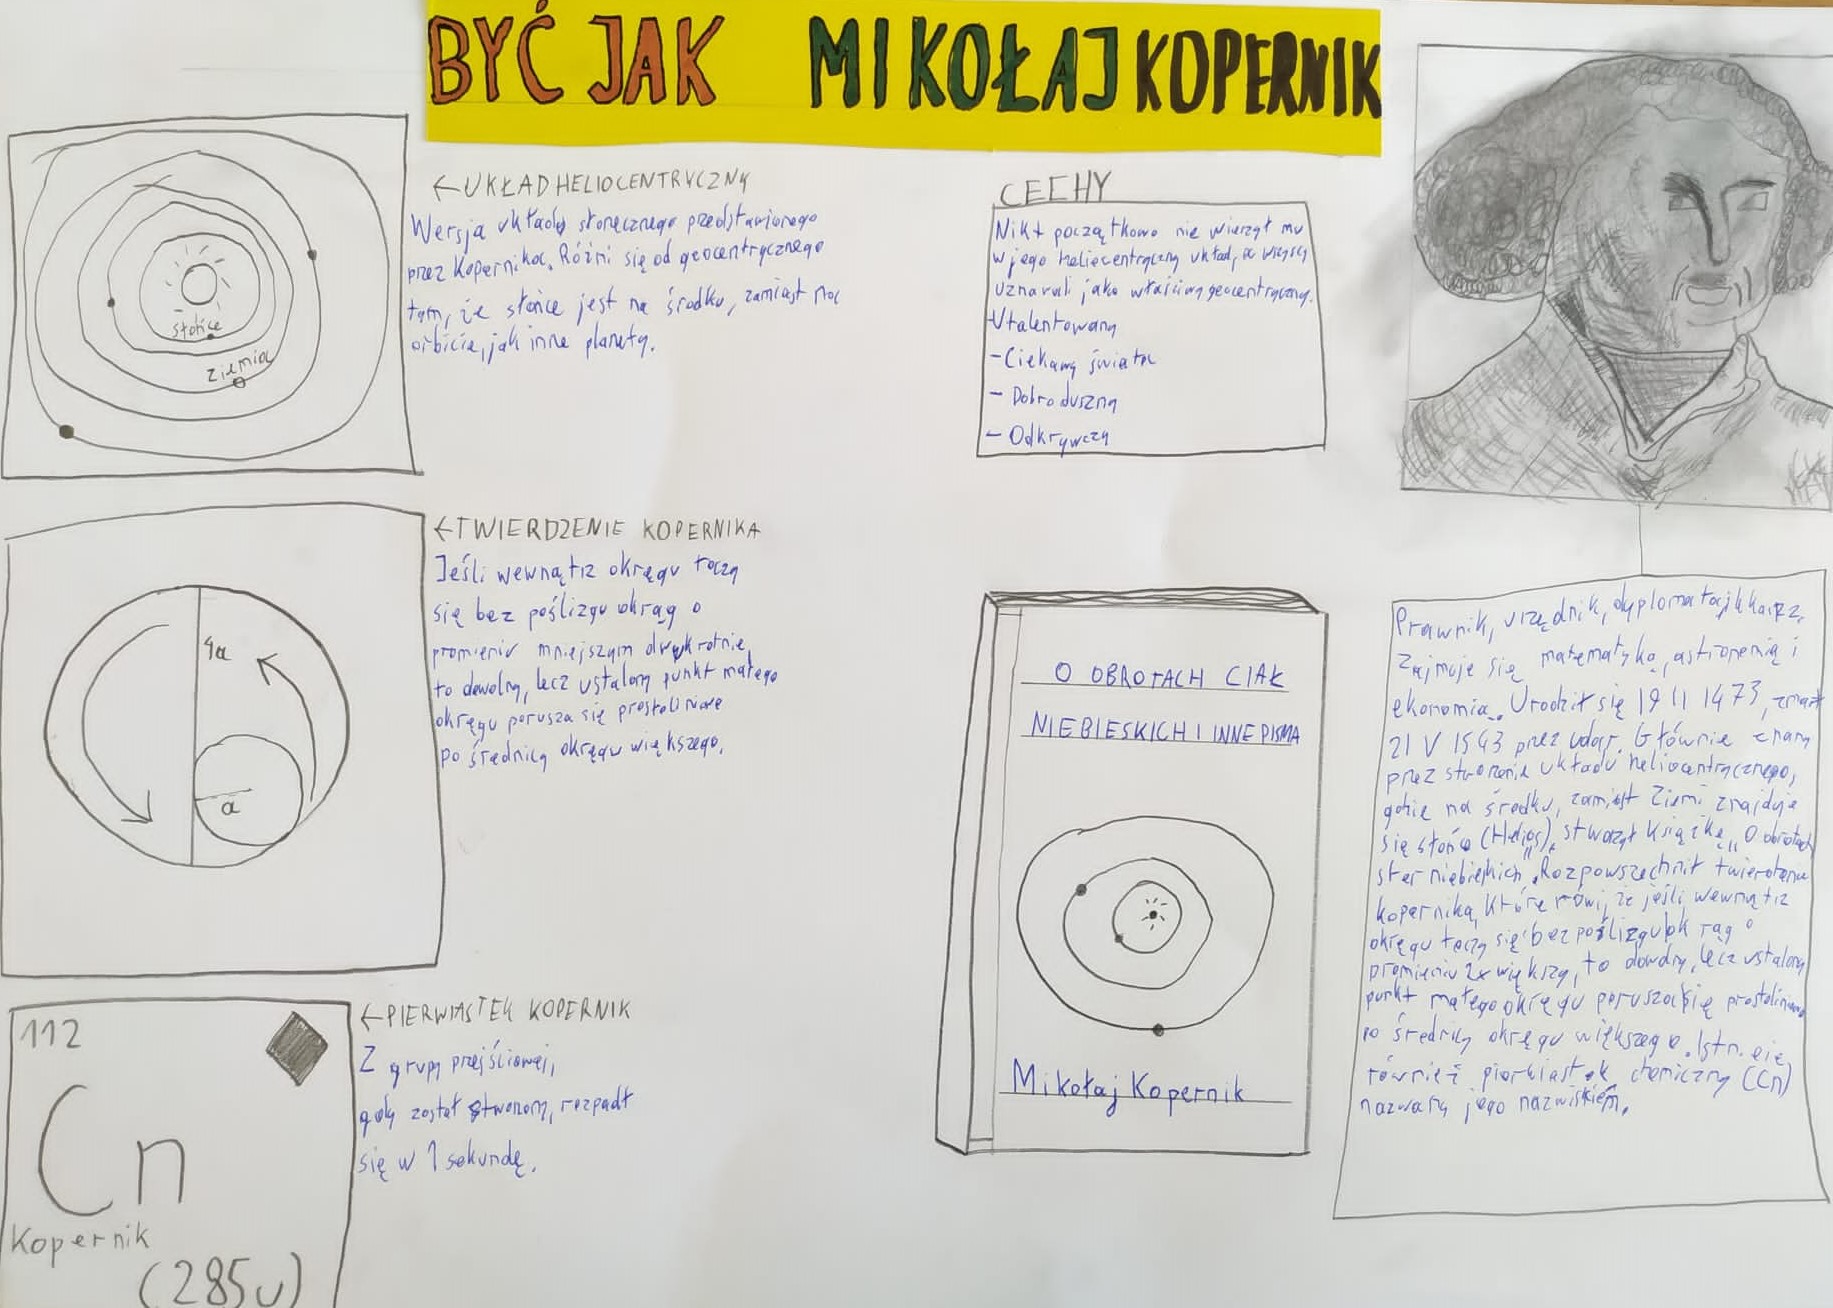 BYĆ JAK MIKOŁAJ KOPERNIK
słońce
Ziemia
← UKŁAD HELIOCENTRYCZNY
Wersja układu słonecznego przedstawionego
przez Kopernika. Różni się od geocentrycznego
tym, że słońce jest na środku, zamiast na
orbicie, jak inne planety.
CECHY
Nikt początkowo nie wierzył mu
w jego heliocentryczny układ, a wszyscy
uznawali jako właściwy geocentryczny.
-Utalentowany
-Ciekawy świata
- Dobroduszny
- Odkrywczy
4a
a
← TWIERDZENIE KOPERNIKA
Jeśli wewnątrz okręgu toczy
się bez poślizgu okrąg o
promieniu mniejszym dwukrotnie,
to dowolny, lecz ustalony punkt małego
okręgu porusza się prostoliniowo
po średnicy okręgu większego.
112
Cn
Kopernik
(285u)
← PIERWIASTEK KOPERNIK
Z grupy przejściowej,
gdy został stworzony, rozpadł
się w 1 sekundę.
O OBROTACH CIAŁ
NIEBIESKICH I INNE PISMA
Mikołaj Kopernik
Prawnik, urzędnik, dyplomata,
Zajmuje się matematyką, astronomią i
ekonomią. Urodził się 19 II 1473, zmarł
21 V 1543 przez udar. Głównie znany
przez stworzenie układu heliocentrycznego,
gdzie na środku, zamiast Ziemi znajduje
się słońce (Helios), stworzył książkę „O obrotach
sfer niebieskich". Rozpowszechnił twierdzenie
kopernika, które mówi, że jeśli wewnątrz
okręgu toczy się bez poślizgu okrąg o
promieniu 2x większy, to dowolny, lecz ustalony
punkt małego okręgu porusza się prostoliniowo
po średnicy okręgu większego. Istnieje
również pierwiastek chemiczny (Cn)
nazwany jego nazwiskiem.